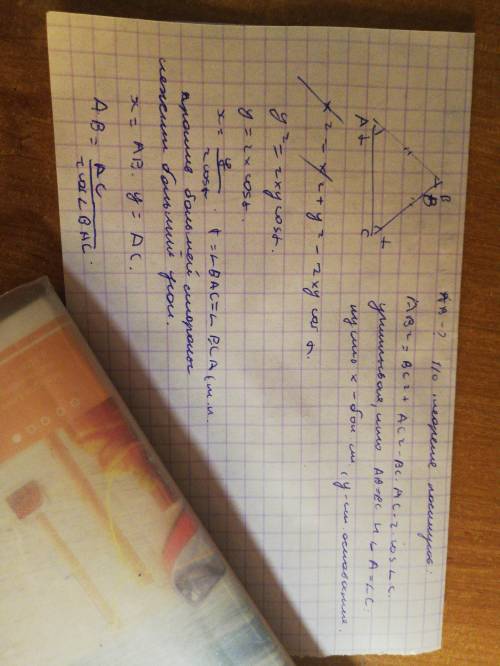 AB-? По теореме косинусов:
AB² = BC² + AC² - BC·AC·2cos∠C.
учитывая, что AB=BC и ∠A=∠C.
пусть x-бок ст, y-ст. основания.
B
β
A
t
C
t
x² = x² + y² - 2xy cos
y² = 2xy cos t.
y = 2x cos t.
x = y / 2cos t . t = ∠BAC = ∠BCA, т.к.
против большей стороны
лежит больший угол.
x = AB. y = AC.
AB = AC / 2cos∠BAC.